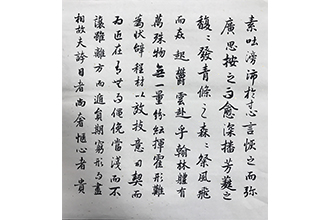 素吐滂沛於寸心言恢之而弥
廣思按之而愈深播芳蕤之
馥〻發青條之森〻粲風飛
而猋起鬱雲赴乎翰林體有
萬殊物無一量紛紜揮霍形難
為狀辭程材以效技意司契而
為匠在有無而僶俛當淺而不
讓雖離方而遁員期窮形而盡
相故夫誇目者尚奢愜心者貴